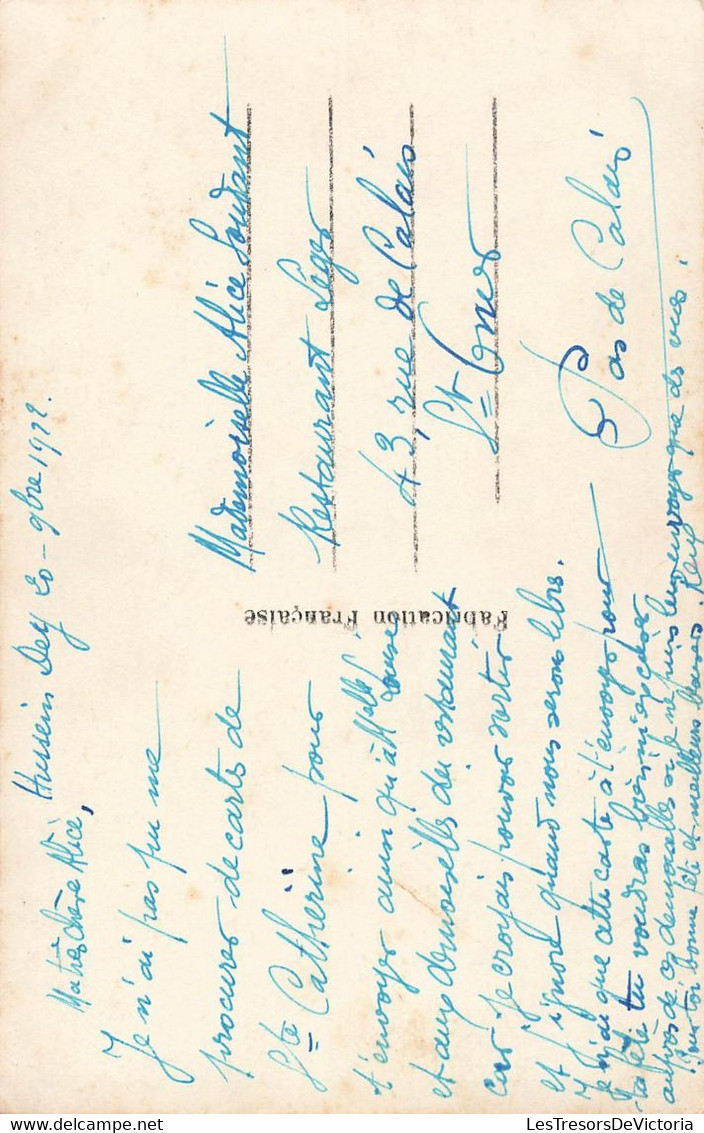 Hussein Dey 20-9bre 1922.
Ma très chère Alice,
Je n'ai pas pu me
procurer de cartes de
Ste Catherine pour
t'envoyer ainsi qu'à Melle
et aux demoiselles du restaurant
car je croyais pouvoir sortir
et j'ignore quand nous serons libre.
Je n'ai que cette carte à t'envoyer pour
ta fête tu voudras bien m'excuser
auprès de ces demoiselles si je ne puis leur envoyer que des vues.
Pour toi bonne fête et meilleurs baisers.
Fabrication Française
Mademoiselle Alice Soudant
Restaurant Leger
43, rue de Calais
St Omer
Pas de Calais
LesTresorsDeVictoria